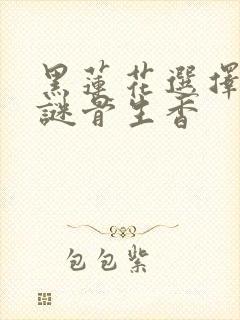 黑蓮花選擇
謎骨生香
包包紫